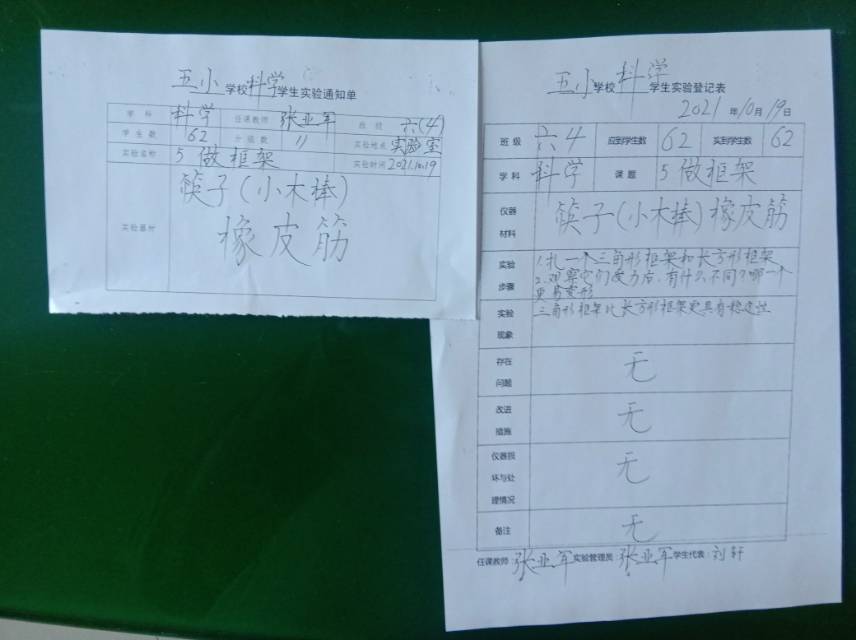 五小学校科学学生实验通知单
学科 科学 任课教师 张亚军 班级 六(4)
学生数 62 分组数 11 实验地点 实验室
实验名称 5 做框架 实验时间 2021.10.19
实验器材 筷子(小木棒)
橡皮筋
五小学校科学学生实验登记表
2021年10月19日
班级 六4 应到学生数 62 实到学生数 62
学科 科学 课题 5 做框架
仪器材料 筷子(小木棒)橡皮筋
实验步骤 1.扎一个三角形框架和长方形框架
2.观察它们受力后,有什么不同?哪一个
更易变形
实验现象 三角形框架比长方形框架更具有稳定性
存在问题 无
改进措施 无
仪器损坏与处理情况 无
备注 无
任课教师:张亚军 实验管理员:张亚军 学生代表:刘轩